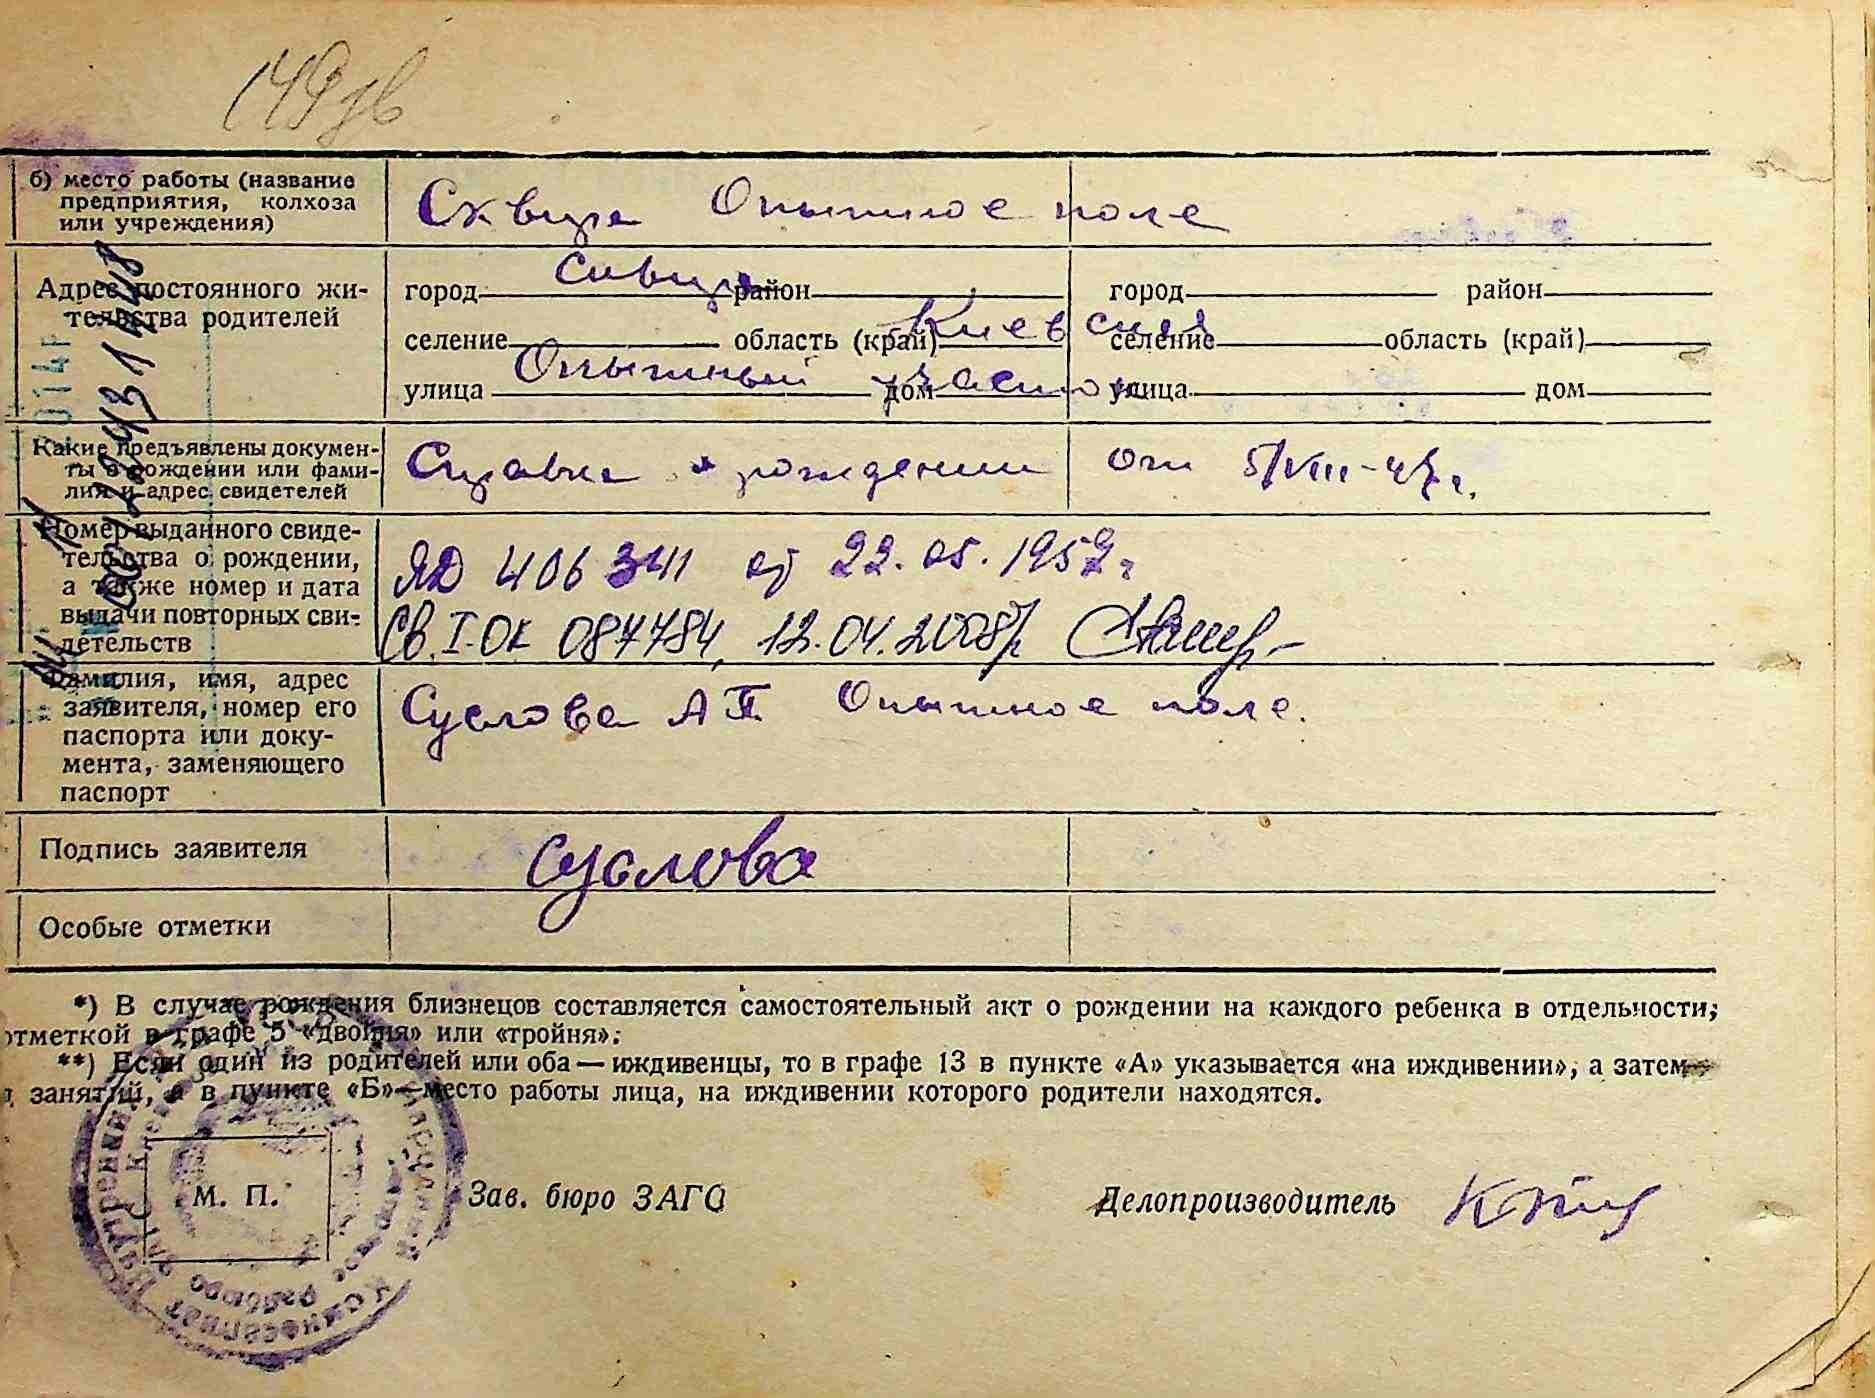 149 зв
б) место работы (название предприятия, колхоза или учреждения) Сквира Опытное поле
Адрес постоянного жительства родителей
город Сквира район город район
селение область (край) Киевская селение область (край)
улица Опытный участок дом улица дом
Какие предъявлены документы о рождении или фамилия и адрес свидетелей Справка о рождении от 5/VIII-47 г.
Номер выданного свидетельства о рождении, а также номер и дата выдачи повторных свидетельств
ЯД 406341 от 22.05.1952 г
Св. I-ОК 087784, 12.04.2008р
Фамилия, имя, адрес заявителя, номер его паспорта или документа, заменяющего паспорт Суслова А П Опытное поле.
Подпись заявителя Суслова
Особые отметки
*) В случае рождения близнецов составляется самостоятельный акт о рождении на каждого ребенка в отдельности,
отметкой в графе 5 «двойня» или «тройня».
**) Если один из родителей или оба — иждивенцы, то в графе 13 в пункте «А» указывается «на иждивении», а затем
занятий, а в пункте «Б» — место работы лица, на иждивении которого родители находятся.
М. П. Зав. бюро ЗАГС Делопроизводитель